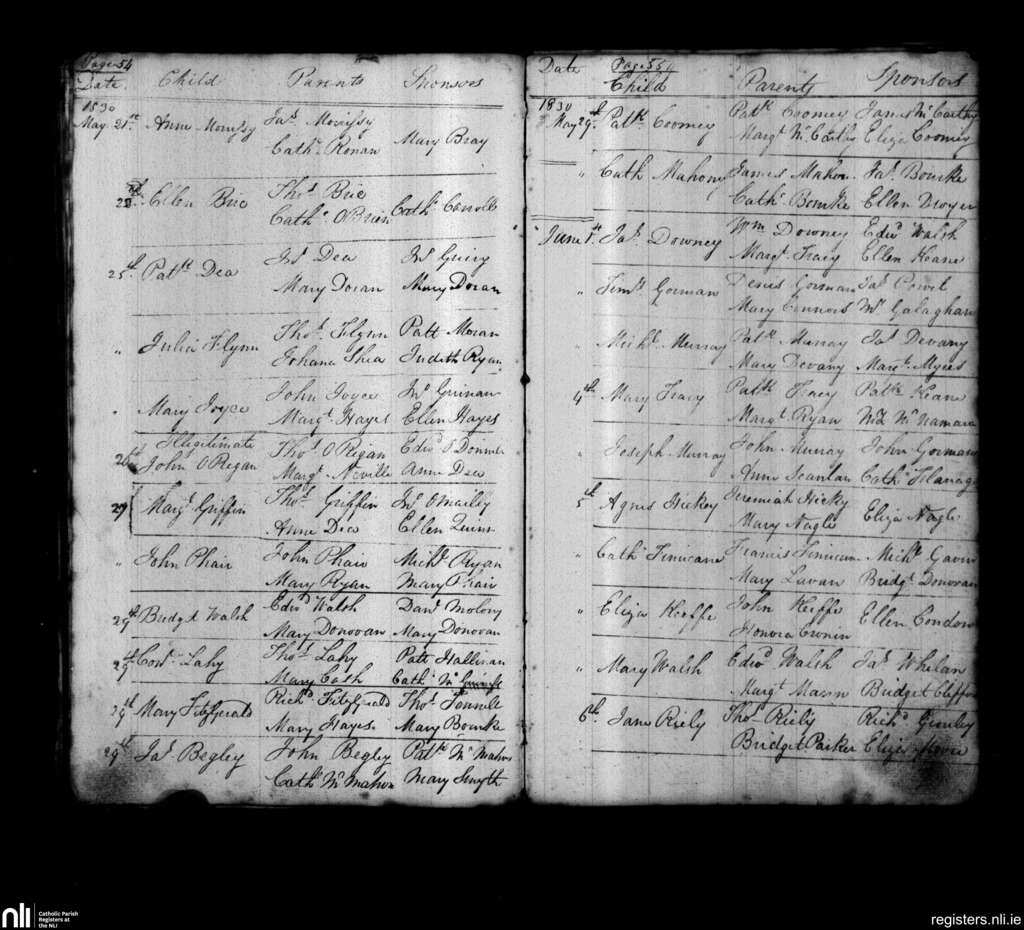 Page 54
Date Child Parents Sponsors
1830
May 21st Anne Morrissy Jas. Morrissy Mary Bray
Cath. Ronan
23d Ellen Brie Thos. Brie Cath. Carroll
Cath. O'Brien
25th Patk. Dea Jno. Dea Jno. Guiry
Mary Doran Mary Doran
" Julia Flynn Thos. Flynn Patt Moran
Johana Shea Judith Ryan
" Mary Joyce John Joyce Jno.
Margt. Hayes Ellen Hayes
Illigitimate
26th John O'Regan Thos. O'Regan Edwd.
Margt. Neville Anne Dea
29 Margt. Griffin Thos. Griffin Jno. O'Mailey
Anne Dea Ellen Quinn
" John Phair John Phair Michl. Ryan
Mary Ryan Mary Phair
29th Bridget Walsh Edwd. Walsh Danl. Molony
Mary Donovan Mary Donovan
29th Lahy Thos. Lahy Patt Hallinan
Mary Cash Cath.
29th Mary Fitzgerald Richd. Fitzgerald Thos.
Mary Hayes Mary Bourke
29th Jas. Begley John Begley Patk. McMahon
Cath. McMahon Mary Smyth
Page 55
Date Child Parents Sponsors
1830
May 29th Patk. Coomey Patk. Coomey James McCarthy
Margt. McCarthy Eliza Coomey
" Cath Mahony James Mahon Jas. Bourke
Cath. Bourke Ellen Dwyer
June 1st Jas. Downey Wm Downey Edwd. Walsh
Margt. Tracy Ellen Keane
" Timy. Gorman Denis Gorman Jas.
Mary Connors Galaghan
" Michl. Murray Patk. Murray Jas. Devany
Mary Devany Margt. Myres
4th Mary Tracy Patk. Tracy Patk. Keane
Margt. Ryan McNamara
" Joseph Murray John Murray John Gorman
Anne Scanlan Cath. Flanagan
5th Agnes Hickey Jeremiah Hicky Eliza Nagle
Mary Nagle
" Cath. Finucane Francis Finucan Michl. Gavin
Mary Lavan Bridgt. Donovan
" Eliza Keeffe John Keiffe Ellen Condon
Honora Cronin
" Mary Walsh Edwd. Walsh Jas. Whelan
Margt. Mason Bridget Clifford
6th Jane Riely Thos. Riely Richd.
Bridget Parker Eliza
nli Catholic Parish
Registers at
the NLI
registers.nli.ie